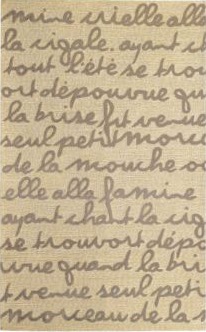 mine crielle alle
la cigale. ayant ch
tout l'été se trou
ort dépourvue qu
la brise fut venue
seul petit morce
de la mouche o
elle alla famine
ayant chant la cig
se trouvort dépo
vrue quand la bri
t venue seul peti
morceau de la